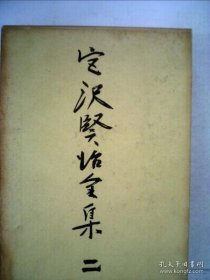 宮沢賢治全集 二
孔夫子旧书网